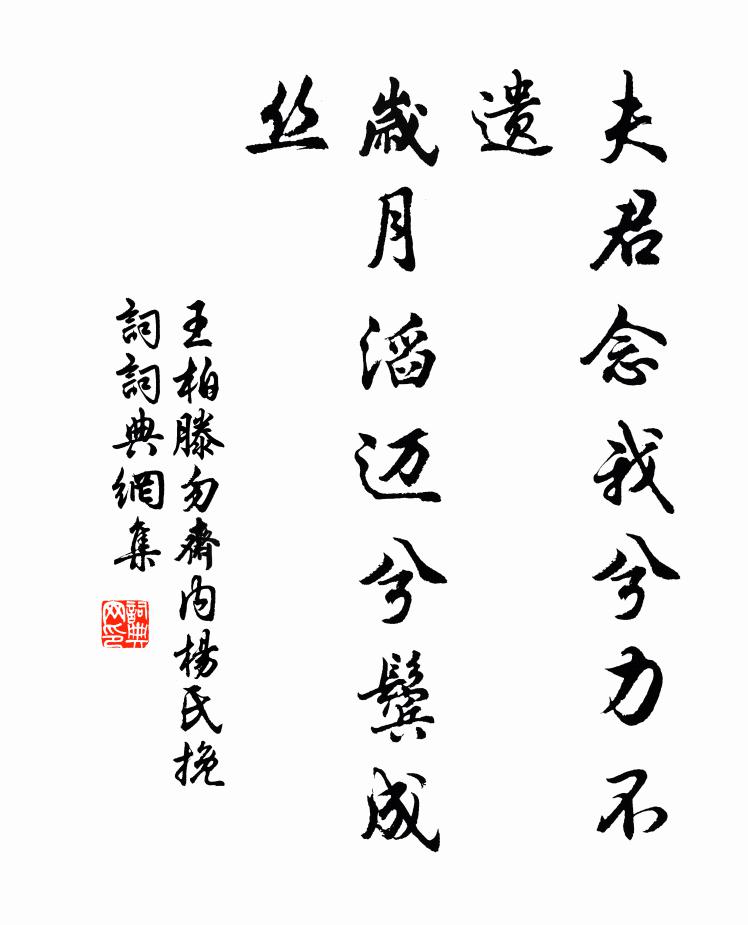 夫君念我兮力不
遗
歲月滔迈兮鬓成
丝
王柏滕勿齋内楊氏挽
詞詞典網集
詞典
网印